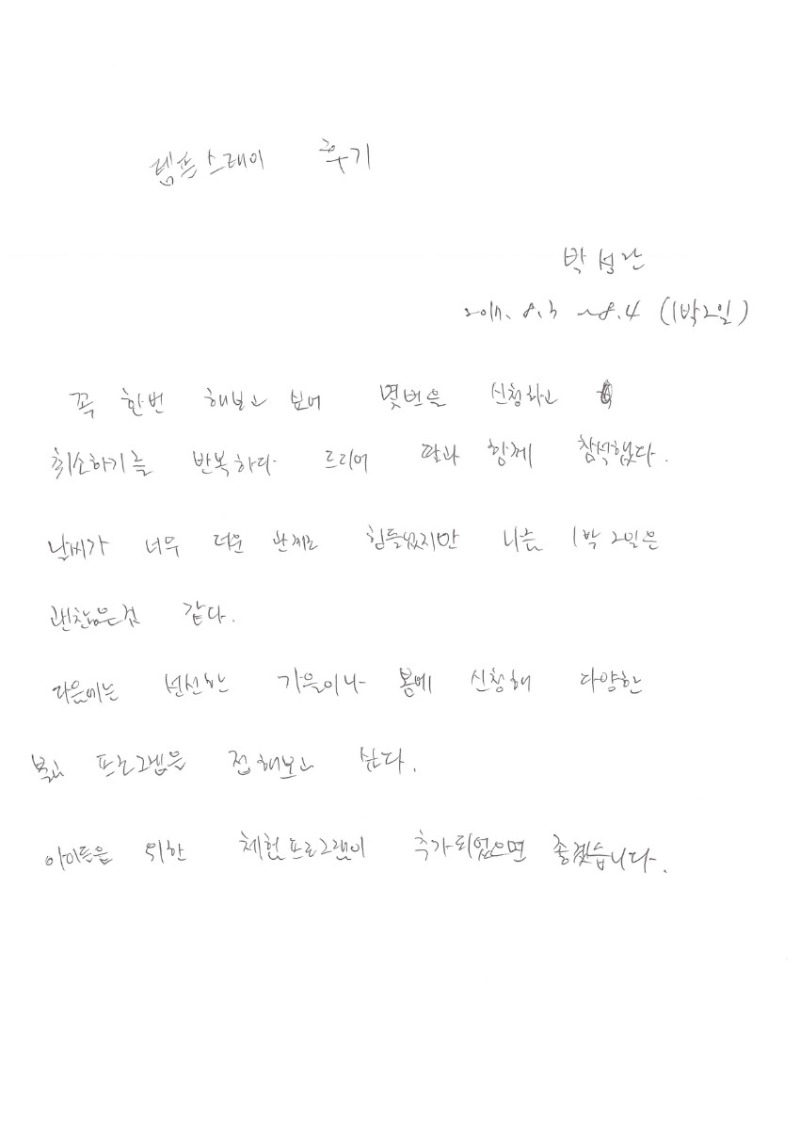 템플스테이 후기
박성란
2017. 8.3 ~8.4 (1박2일)
꼭 한번 해보고 싶어 몇번을 신청하고
취소하기를 반복하다 드디어 딸과 함께 참석했다.
날씨가 너무 더운 관계로 힘들었지만 나름 1박 2일은
괜찮은것 같다.
다음에는 선선한 가을이나 봄에 신청해 다양한
불교 프로그램을 접해보고 싶다.
아이들을 위한 체험프로그램이 추가되었으면 좋겠습니다.